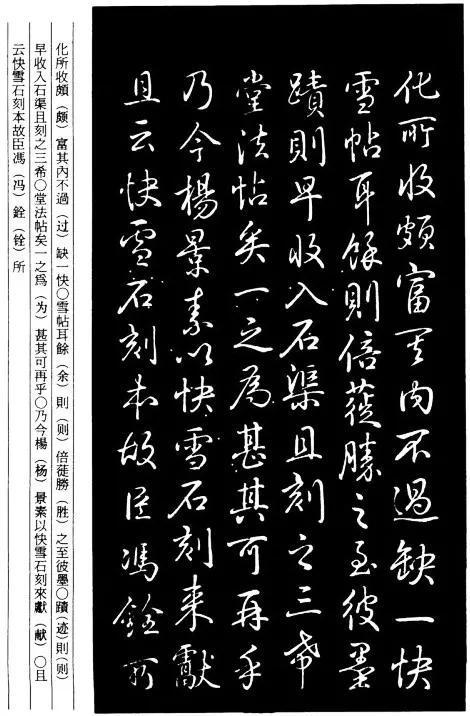 化所收頗富其内不過缺一快
雪帖耳餘則倍蓰勝之至彼墨
蹟則早收入石渠且刻之三希
堂法帖矣一之為甚其可再乎
乃今楊景素以快雪石刻来獻
且云快雪石刻本故臣馮銓所
化所收頗（颇）富其內不過（过）缺一快○雪帖耳餘（余）則（则）倍蓰勝（胜）之至彼墨○蹟(迹)則(则)
早收入石渠且刻之三希○堂法帖矣一之爲（为）甚其可再乎○乃今楊（杨）景素以快雪石刻來獻（献）○且
云快雪石刻本故臣馮（冯）銓（铨）所